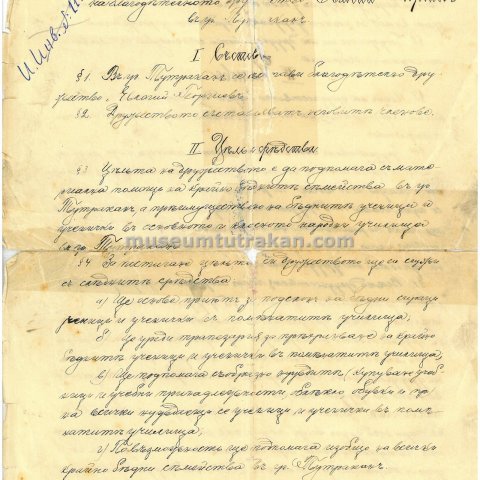 на благодѣтелното
въ гр. Тутраканъ.
И. Инв. №
I Съставъ
§ 1. Въ гр. Тутраканъ се основава благодѣтелно дру-
жество „Евлогий Георгиевъ“
§ 2. Дружеството съставляватъ неговитѣ членове.
II Цѣль и срѣдства
§ 3 Цѣльта на дружеството е да подпомага съ мате-
риална помощь на крайно бѣднитѣ семейства въ гр.
Тутраканъ, а преимуществено на бѣднитѣ ученици и
ученички въ основното и класното народни училища
въ гр.
museumtutrakan.com
§ 4. За постигание цѣльта си дружеството ще си служи
съ слѣднитѣ срѣдства:
а) Ще основе приютъ за подслонъ на бѣдни
ученици и ученички въ помѣнатитѣ училища;
б) Ще уреди трапезария за прѣхранване на крайно
бѣднитѣ ученици и ученички въ помѣнатитѣ училища;
в) Ще подпомага съобразно нуждитѣ, купуване учеб-
ници и учебни принадлежности, облекло обувки и пр.
на всички нуждающи се ученици и ученички въ помѣ-
натитѣ училища;
г) По възможность ще подпомага изобщо на всички
крайно бѣдни семейства въ гр. Тутраканъ.